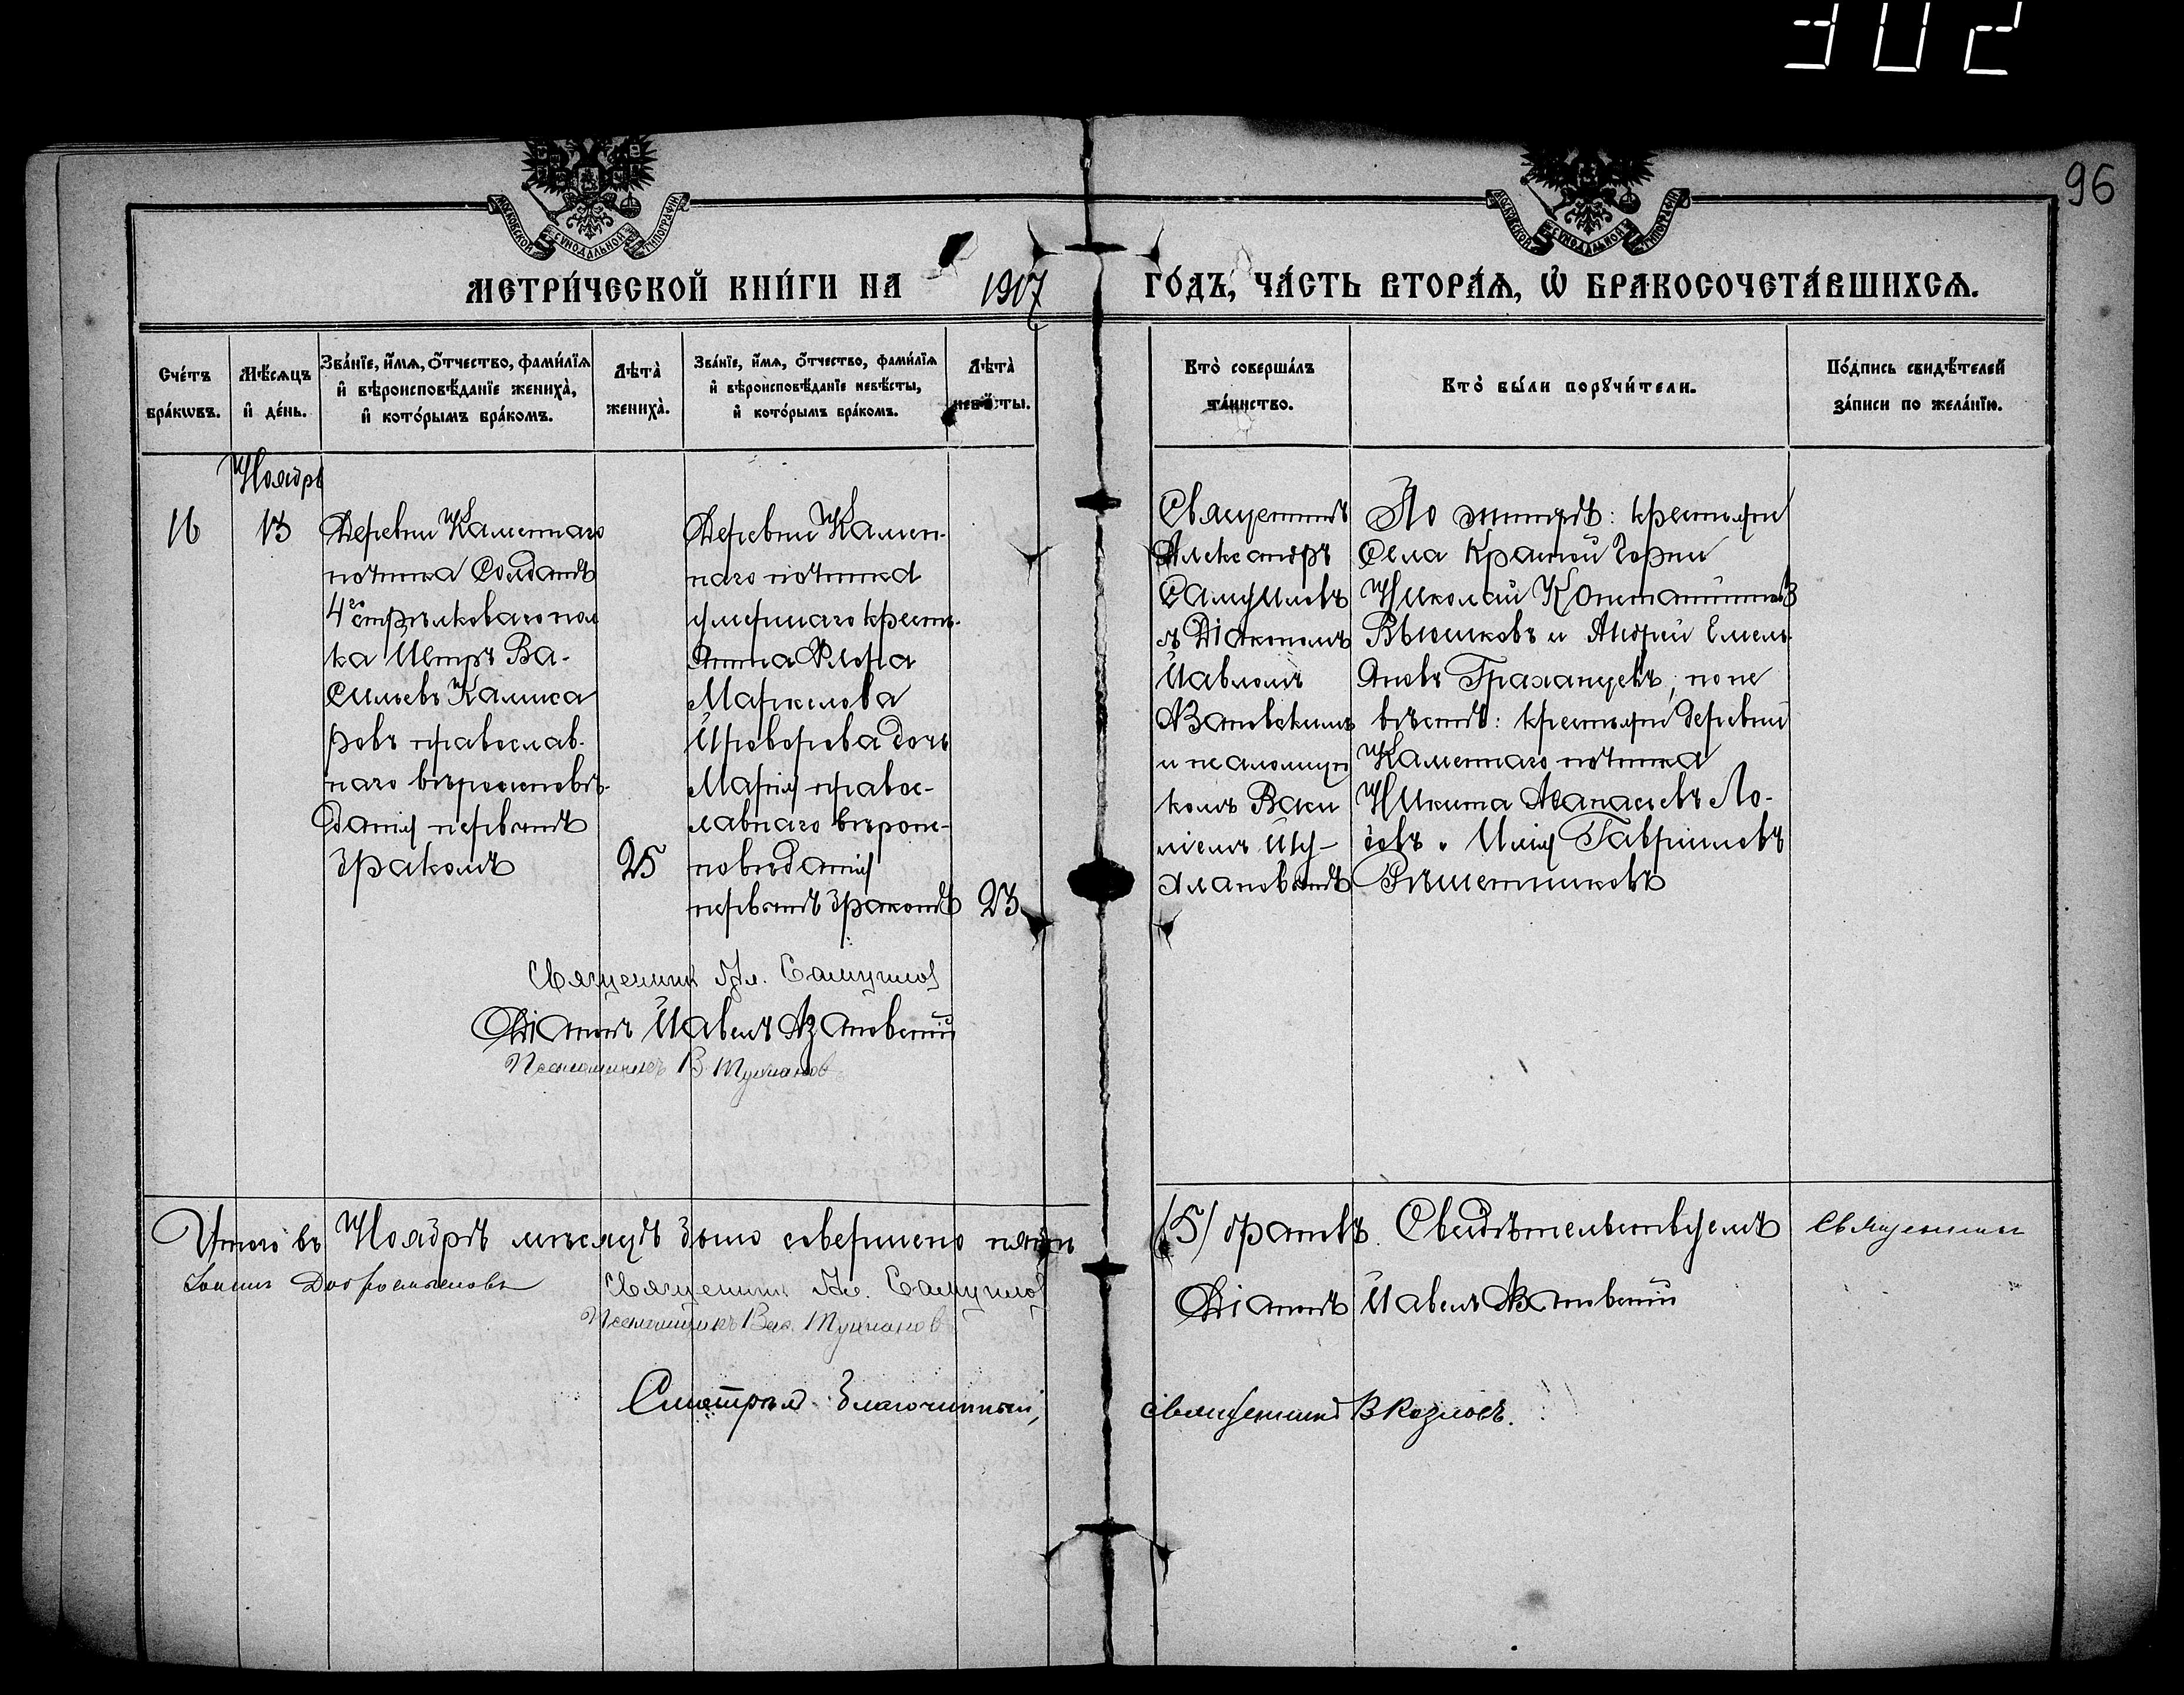 302
96
МОСКОВСКОЙ СУНОДАЛЬНОЙ ТИПОГРАФІИ
МОСКОВСКОЙ СУНОДАЛЬНОЙ ТИПОГРАФІИ
МЕТРИ́ЧЕСКОЙ КНИ́ГИ НА 1917 ГО́ДЪ, ЧА́СТЬ ВТОРА́Ѧ, Ѽ БРАКОСОЧЕТА́ВШИХСѦ.
Сче́тъ
бра́кѡвъ.
Мѣ́сѧцъ
и҆ де́нь.
Зва́нїе, и҆́мѧ, ѻ҆́тчество, фами́лїѧ
и҆ вѣроисповѣ́данїе жениха̀,
и҆ кото́рымъ бра́комъ.
Лѣ́та̀
жениха̀.
Зва́нїе, и҆́мѧ, ѻ҆́тчество, фами́лїѧ
и҆ вѣроисповѣ́данїе невѣ́сты,
и҆ кото́рымъ бра́комъ.
Лѣ́та̀
невѣ́сты.
Кто̀ соверша́лъ
та́инство.
Кто̀ бы́ли порꙋчи́тели.
По́дпись свидѣ́телей
за́писи по жела́нїю.
Ноябрь
16
13
Деревни Каменнаго
починка Солдатъ
4го стрѣлковаго пол
ка Петръ Ва-
сильевъ
ровъ православ-
наго вѣроисповѣ-
данія первымъ
бракомъ
25
Деревни Камен-
наго починка
умершаго крест.
Маркелова
Проворова дочь
Марія правос-
лавнаго вѣроис-
повѣданія
первымъ бракомъ
23
Священникъ
Александръ
Самуиловъ
съ Діакономъ
Павломъ
Азановскимъ
и псаломщи
комъ Васи
ліемъ
По женихѣ: крестьяне
Села Красной Горки
Николай Константиновъ
Вьюшковъ и Андрей Емель-
яновъ; по не
вѣстѣ: крестьяне деревни
Каменнаго починка
Никита Аѳанасьевъ Ло-
бовъ и Илія Гавриловъ
Рѣшетниковъ
Священникъ Ал. Самуилов
Діаконъ Павелъ Азановскій
Псаломщикъ В. Тукмановъ
Итого въ Ноябрѣ мѣсяцѣ было совершено пять
/5/ браковъ. Свидѣтельствуемъ
Священникъ
Іоаннъ Добросмысловъ
Священникъ Ал. Самуилов
Діаконъ Павелъ Азановскій
Псаломщикъ Вас. Тукмановъ
Смотрѣлъ Благочинный,
священникъ В Козловъ.